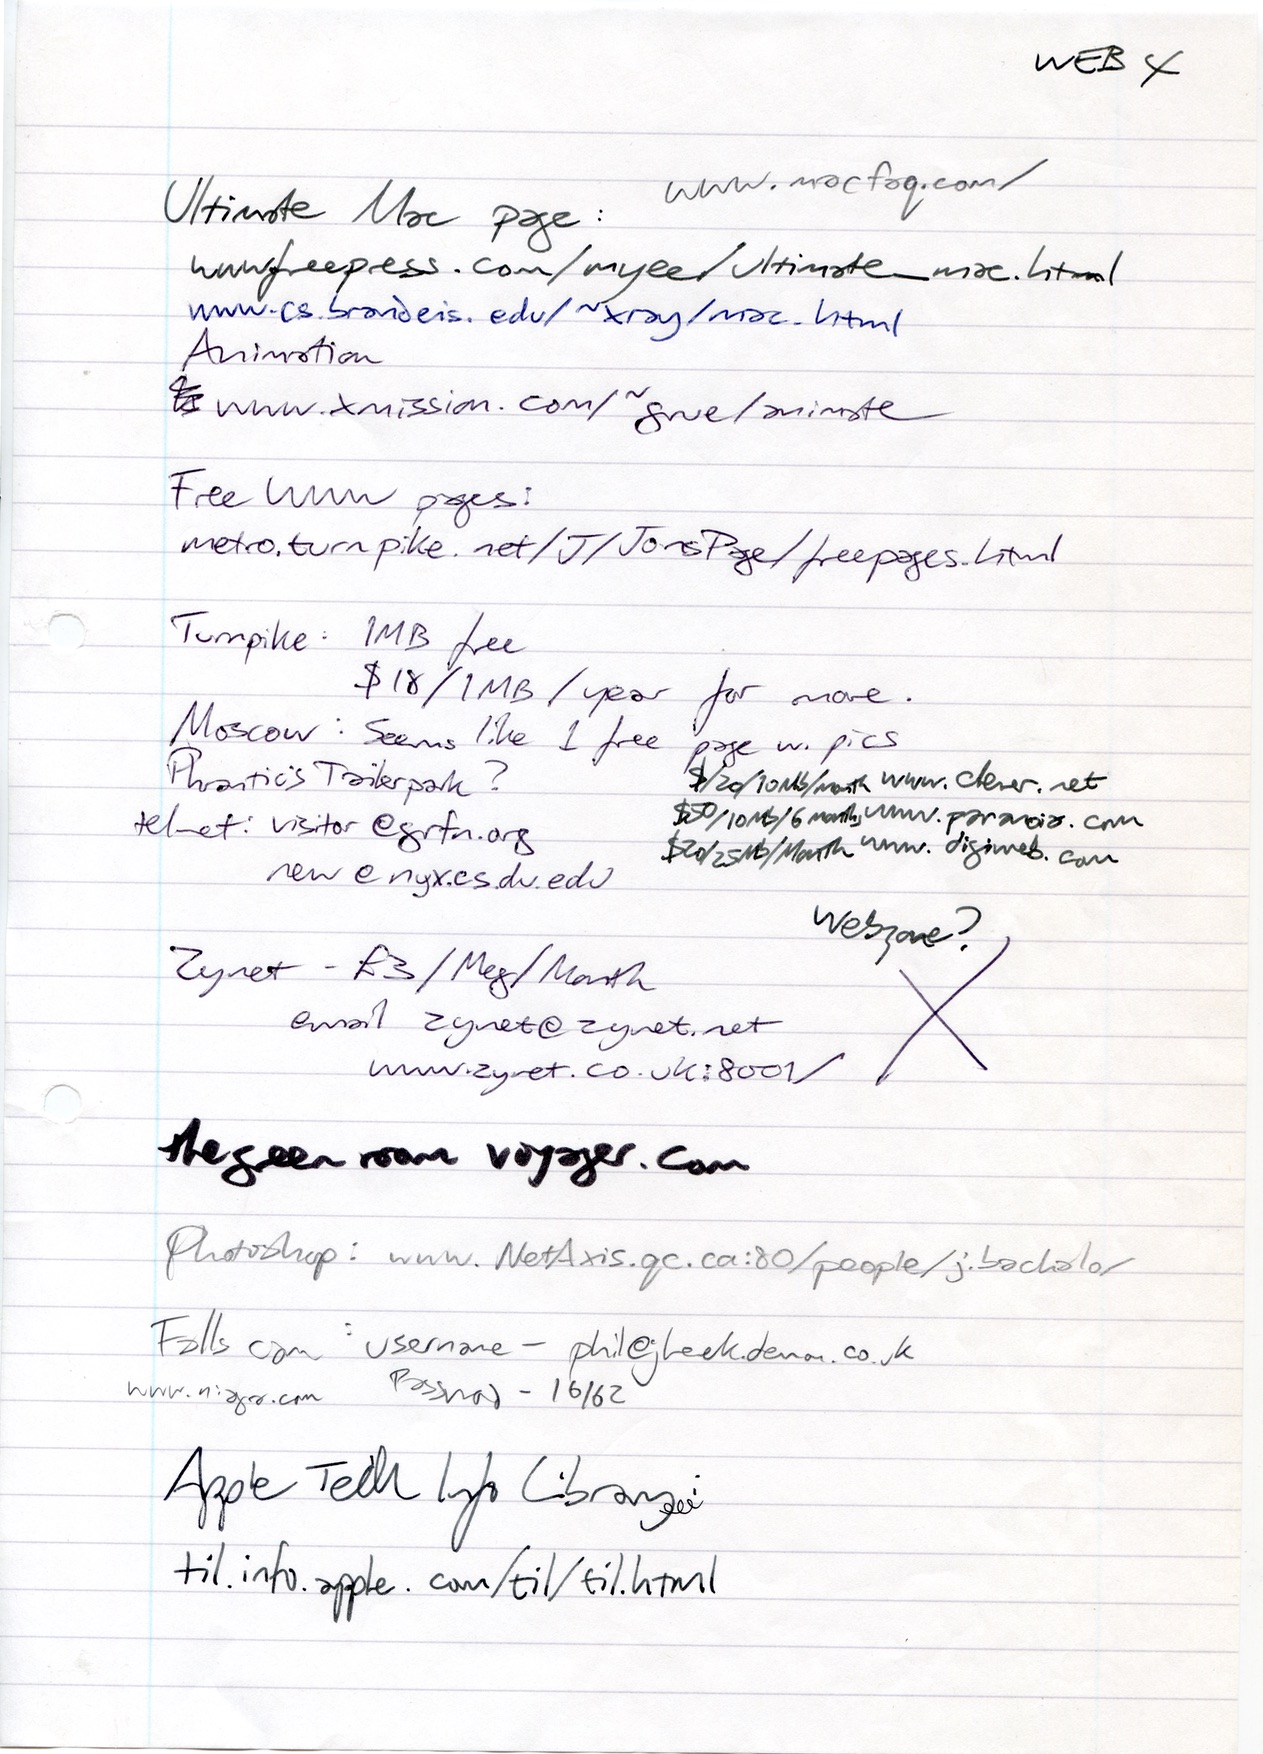 WEB 4
www.macfaq.com/
Ultimate Mac page:
www.freepress.com/myee/ultimate_mac.html
www.cs.brandeis.edu/~xray/mac.html
Animation
www.xmission.com/~grue/animate
Free WWW pages:
metro.turnpike.net/J/JonsPage/freepages.html
Turnpike: 1MB free
$18/1MB/year for more.
Moscow: Seems like 1 free page w. pics
Phrantic's Trailerpark?
$/20/10Mb/month www.clever.net
$50/10Mb/6 months www.paranoia.com
telnet: visitor@grfn.org
$20/25Mb/Month www.digiweb.com
new@nyx.cs.du.edu
Webzone?
Zynet - £3/Meg/Month
email zynet@zynet.net
www.zynet.co.uk:8001/
thegreen room voyager.com
Photoshop: www.NetAxis.qc.ca:80/people/j.bachalo/
Falls cam: username - phil@gheek.demon.co.uk
www.niagra.com Password - 16/62
Apple Tech Info Library:
til.info.apple.com/til/til.html